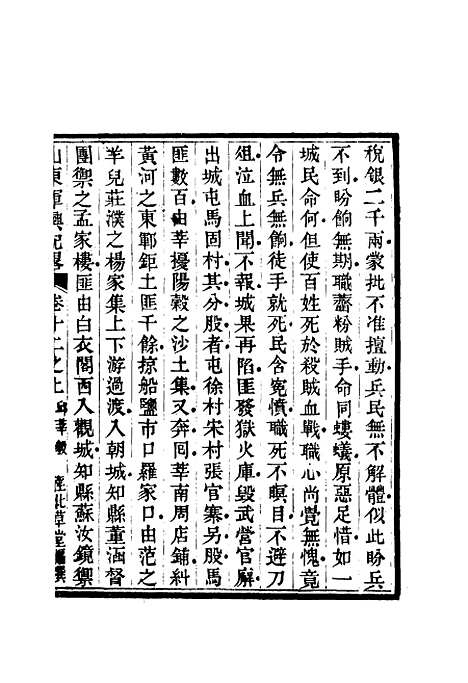 稅銀二千兩蒙批不准擅動兵民無不解體似此盼兵
不到盼餉無期職虀粉賊手命同螻蟻原惡足惜如一
城民命何但使百姓死於殺賊血戰職心尚覺無愧竟
令無兵無餉徒手就死民含寃憤職死不瞑目不避刀
俎泣血上聞不報城果再陷匪發獄火庫毀武營官廨
出城屯馬固村其分股者屯徐村宋村張官寨另股馬
匪數百由莘擾陽穀之沙土集又奔囘莘南周店鋪糾
黃河之東鄆鉅土匪千餘掠船鹽市口羅家口由范之
羊兒莊濮之楊家集上下游過渡入朝城知縣董涵督
團禦之孟家樓匪由白衣閣西入觀城知縣蘇汝鏡禦
山東軍興紀畧 卷十二之上 邱莘